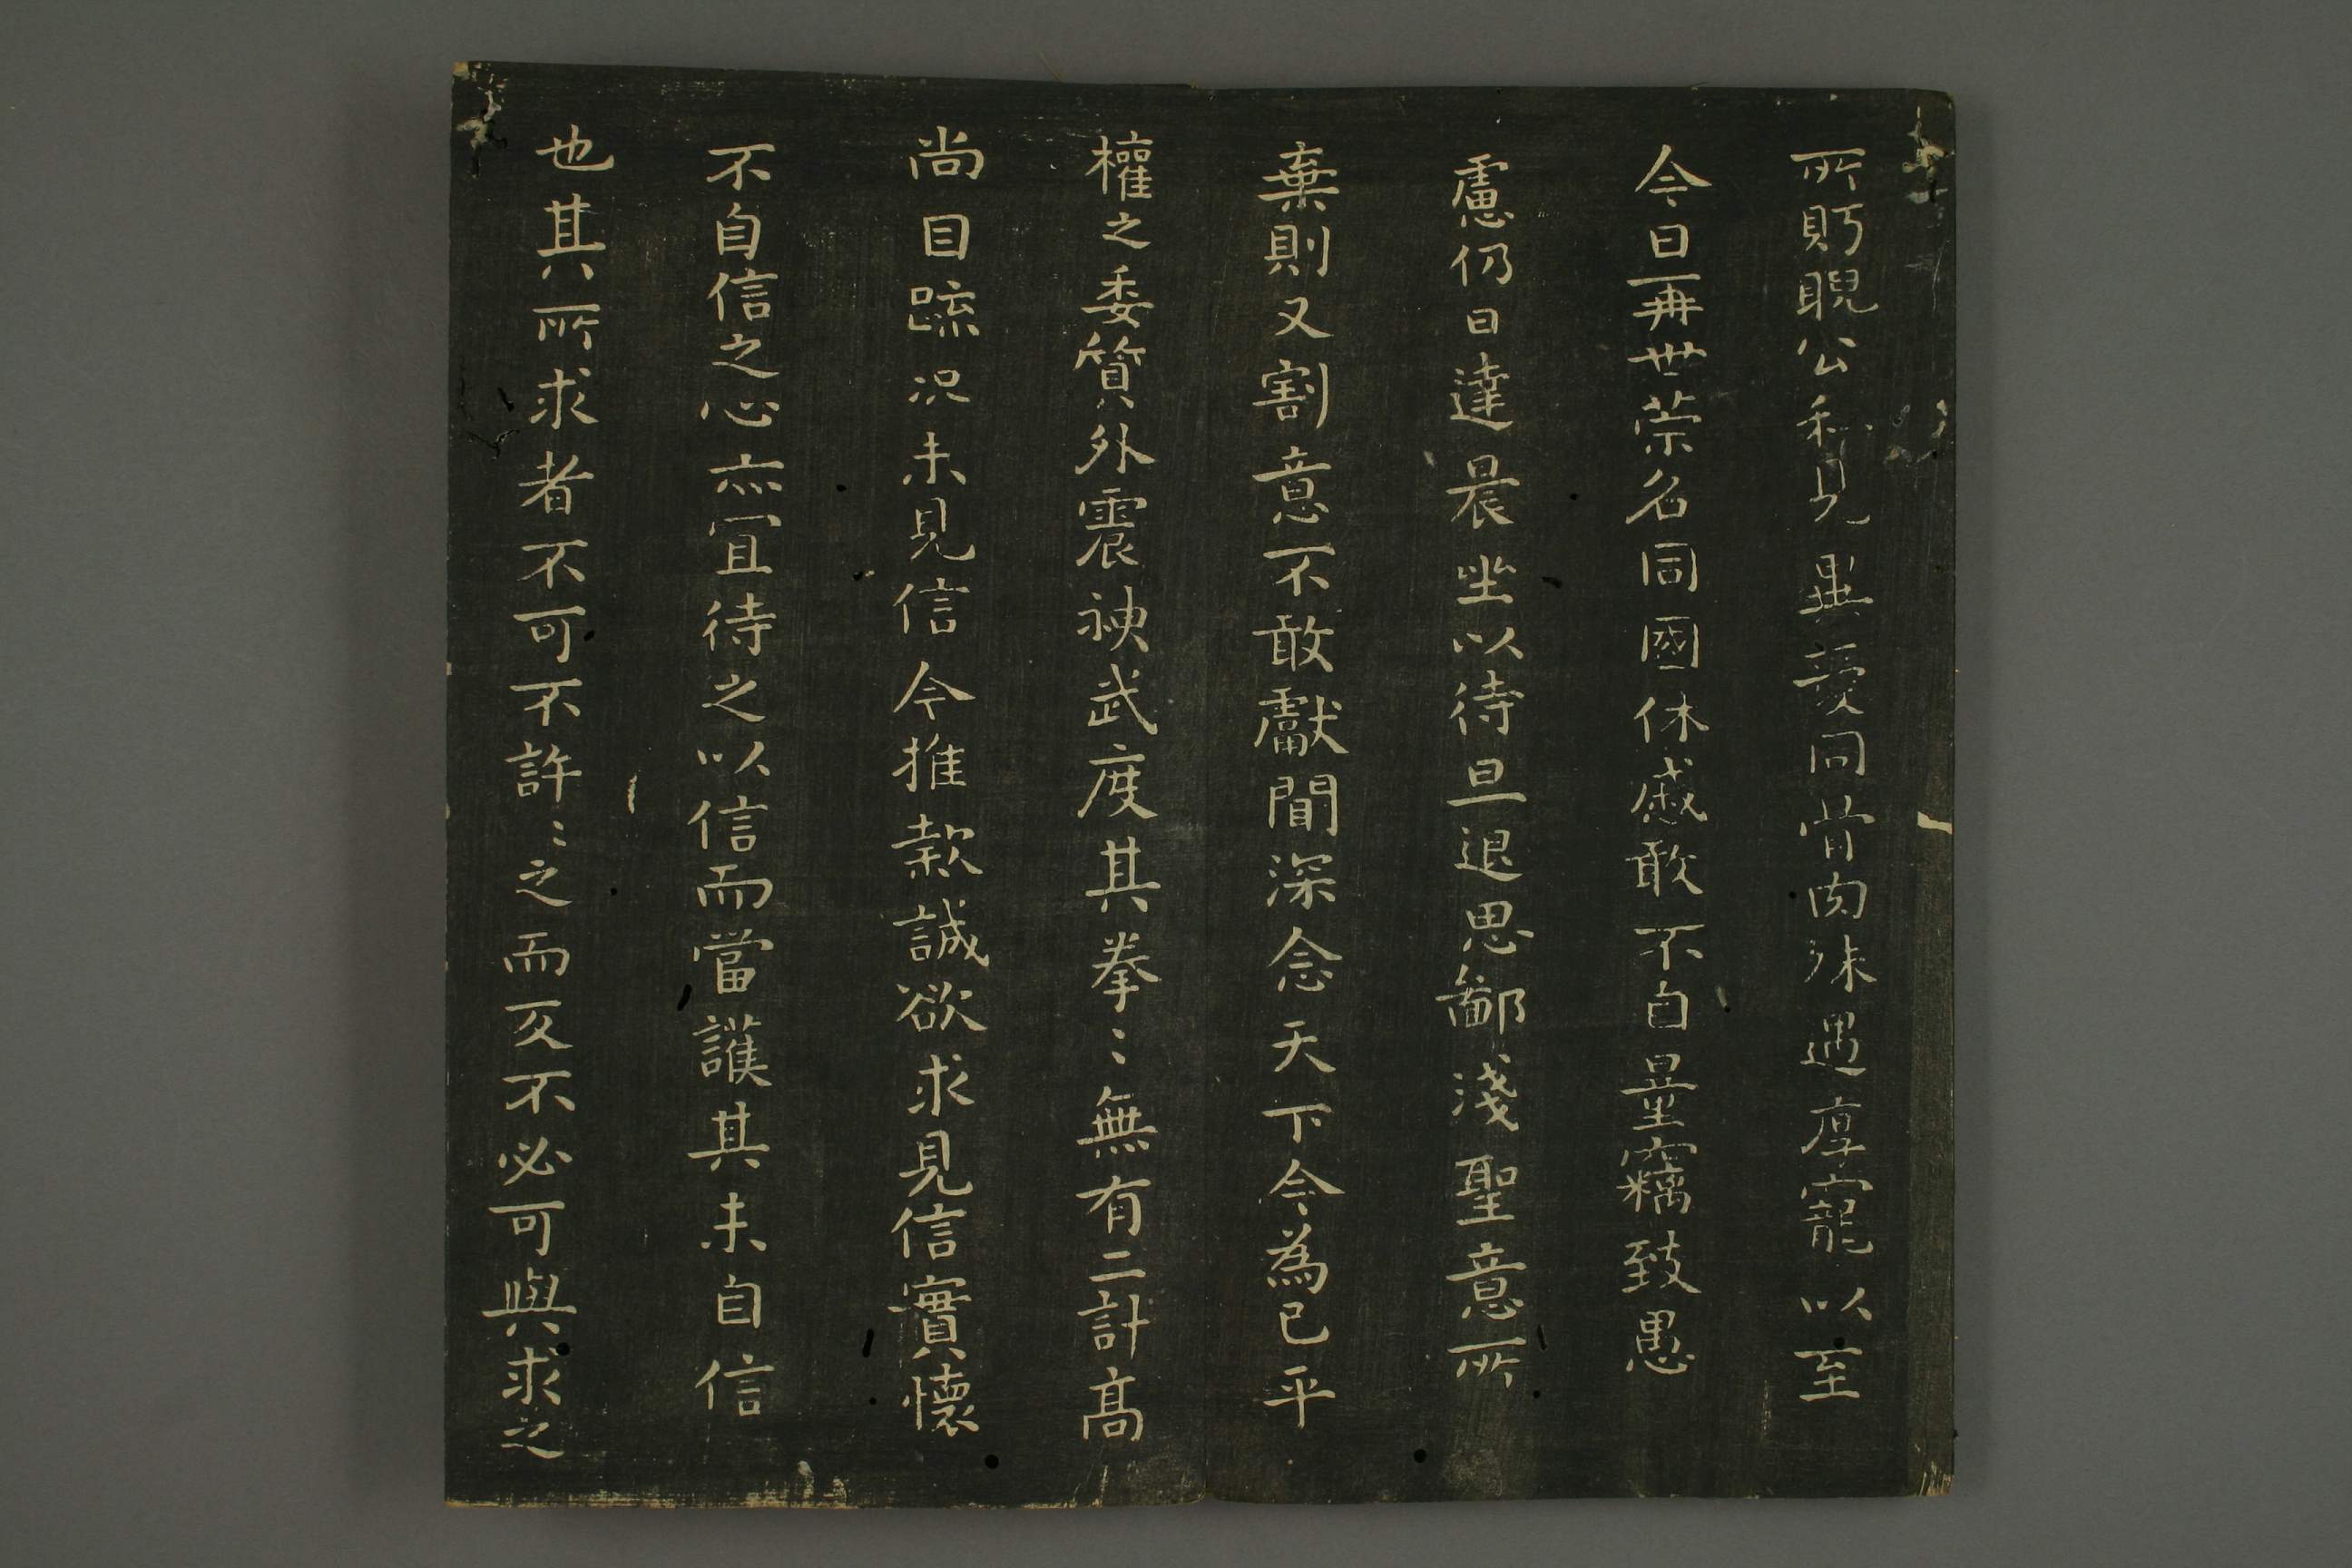 所眄睨公私見異愛同骨肉殊遇厚寵以至
今日再世荣名同國休慼敢不自量竊致愚
慮仍日達晨坐以待旦退思鄙淺聖意所
棄則又割意不敢獻聞深念天下今為已平
權之委質外震神武度其拳〻無有二計高
尚自疏况未見信今推款誠欲求見信實懷
不自信之心亦宜待之以信而當護其未自信
也其所求者不可不許〻之而反不必可與求之